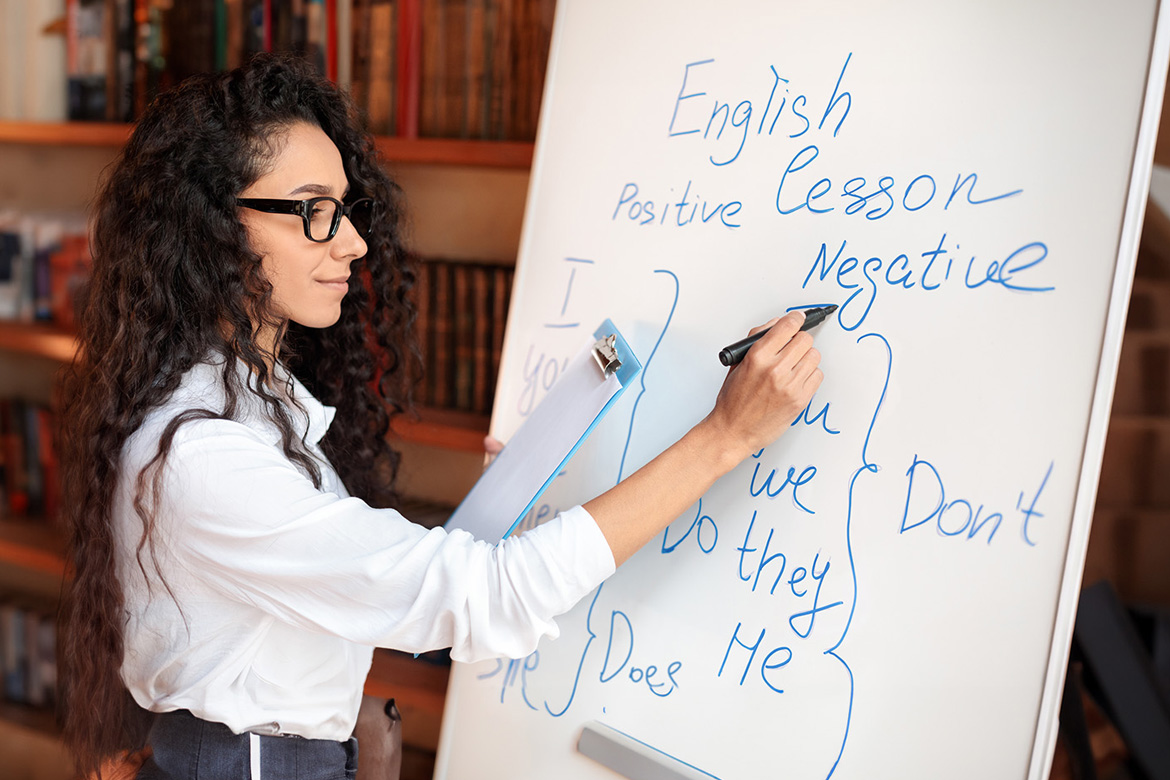 English
lesson
Positive
Negative
I
you
we
Do
they
Don't
She
Does
Me